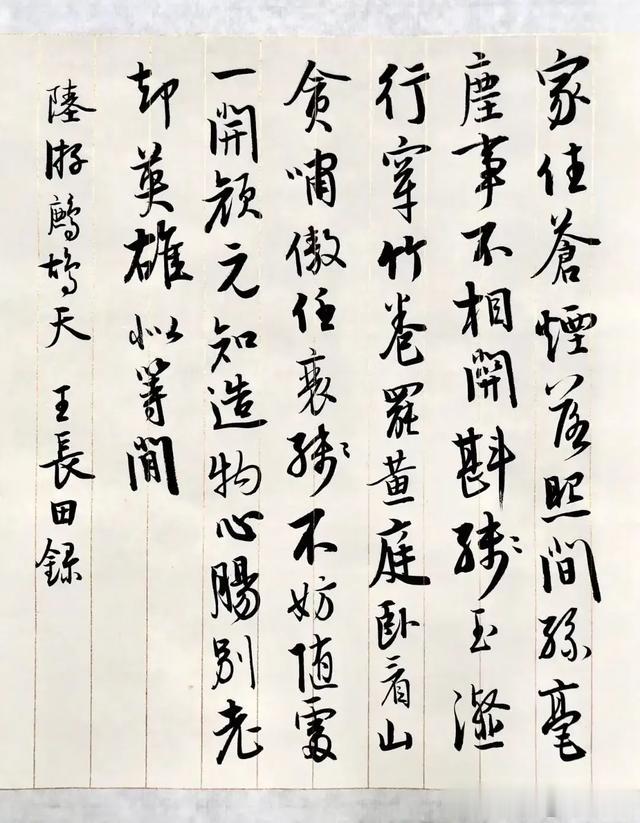 家住蒼煙落照間絲毫
塵事不相關斟殘玉瀣
行穿竹卷罷黃庭臥看山
貪嘯傲任衰殘不妨隨處
一開顏元知造物心腸別老
却英雄似等閒
陸游鷓鴣天 王長田錄